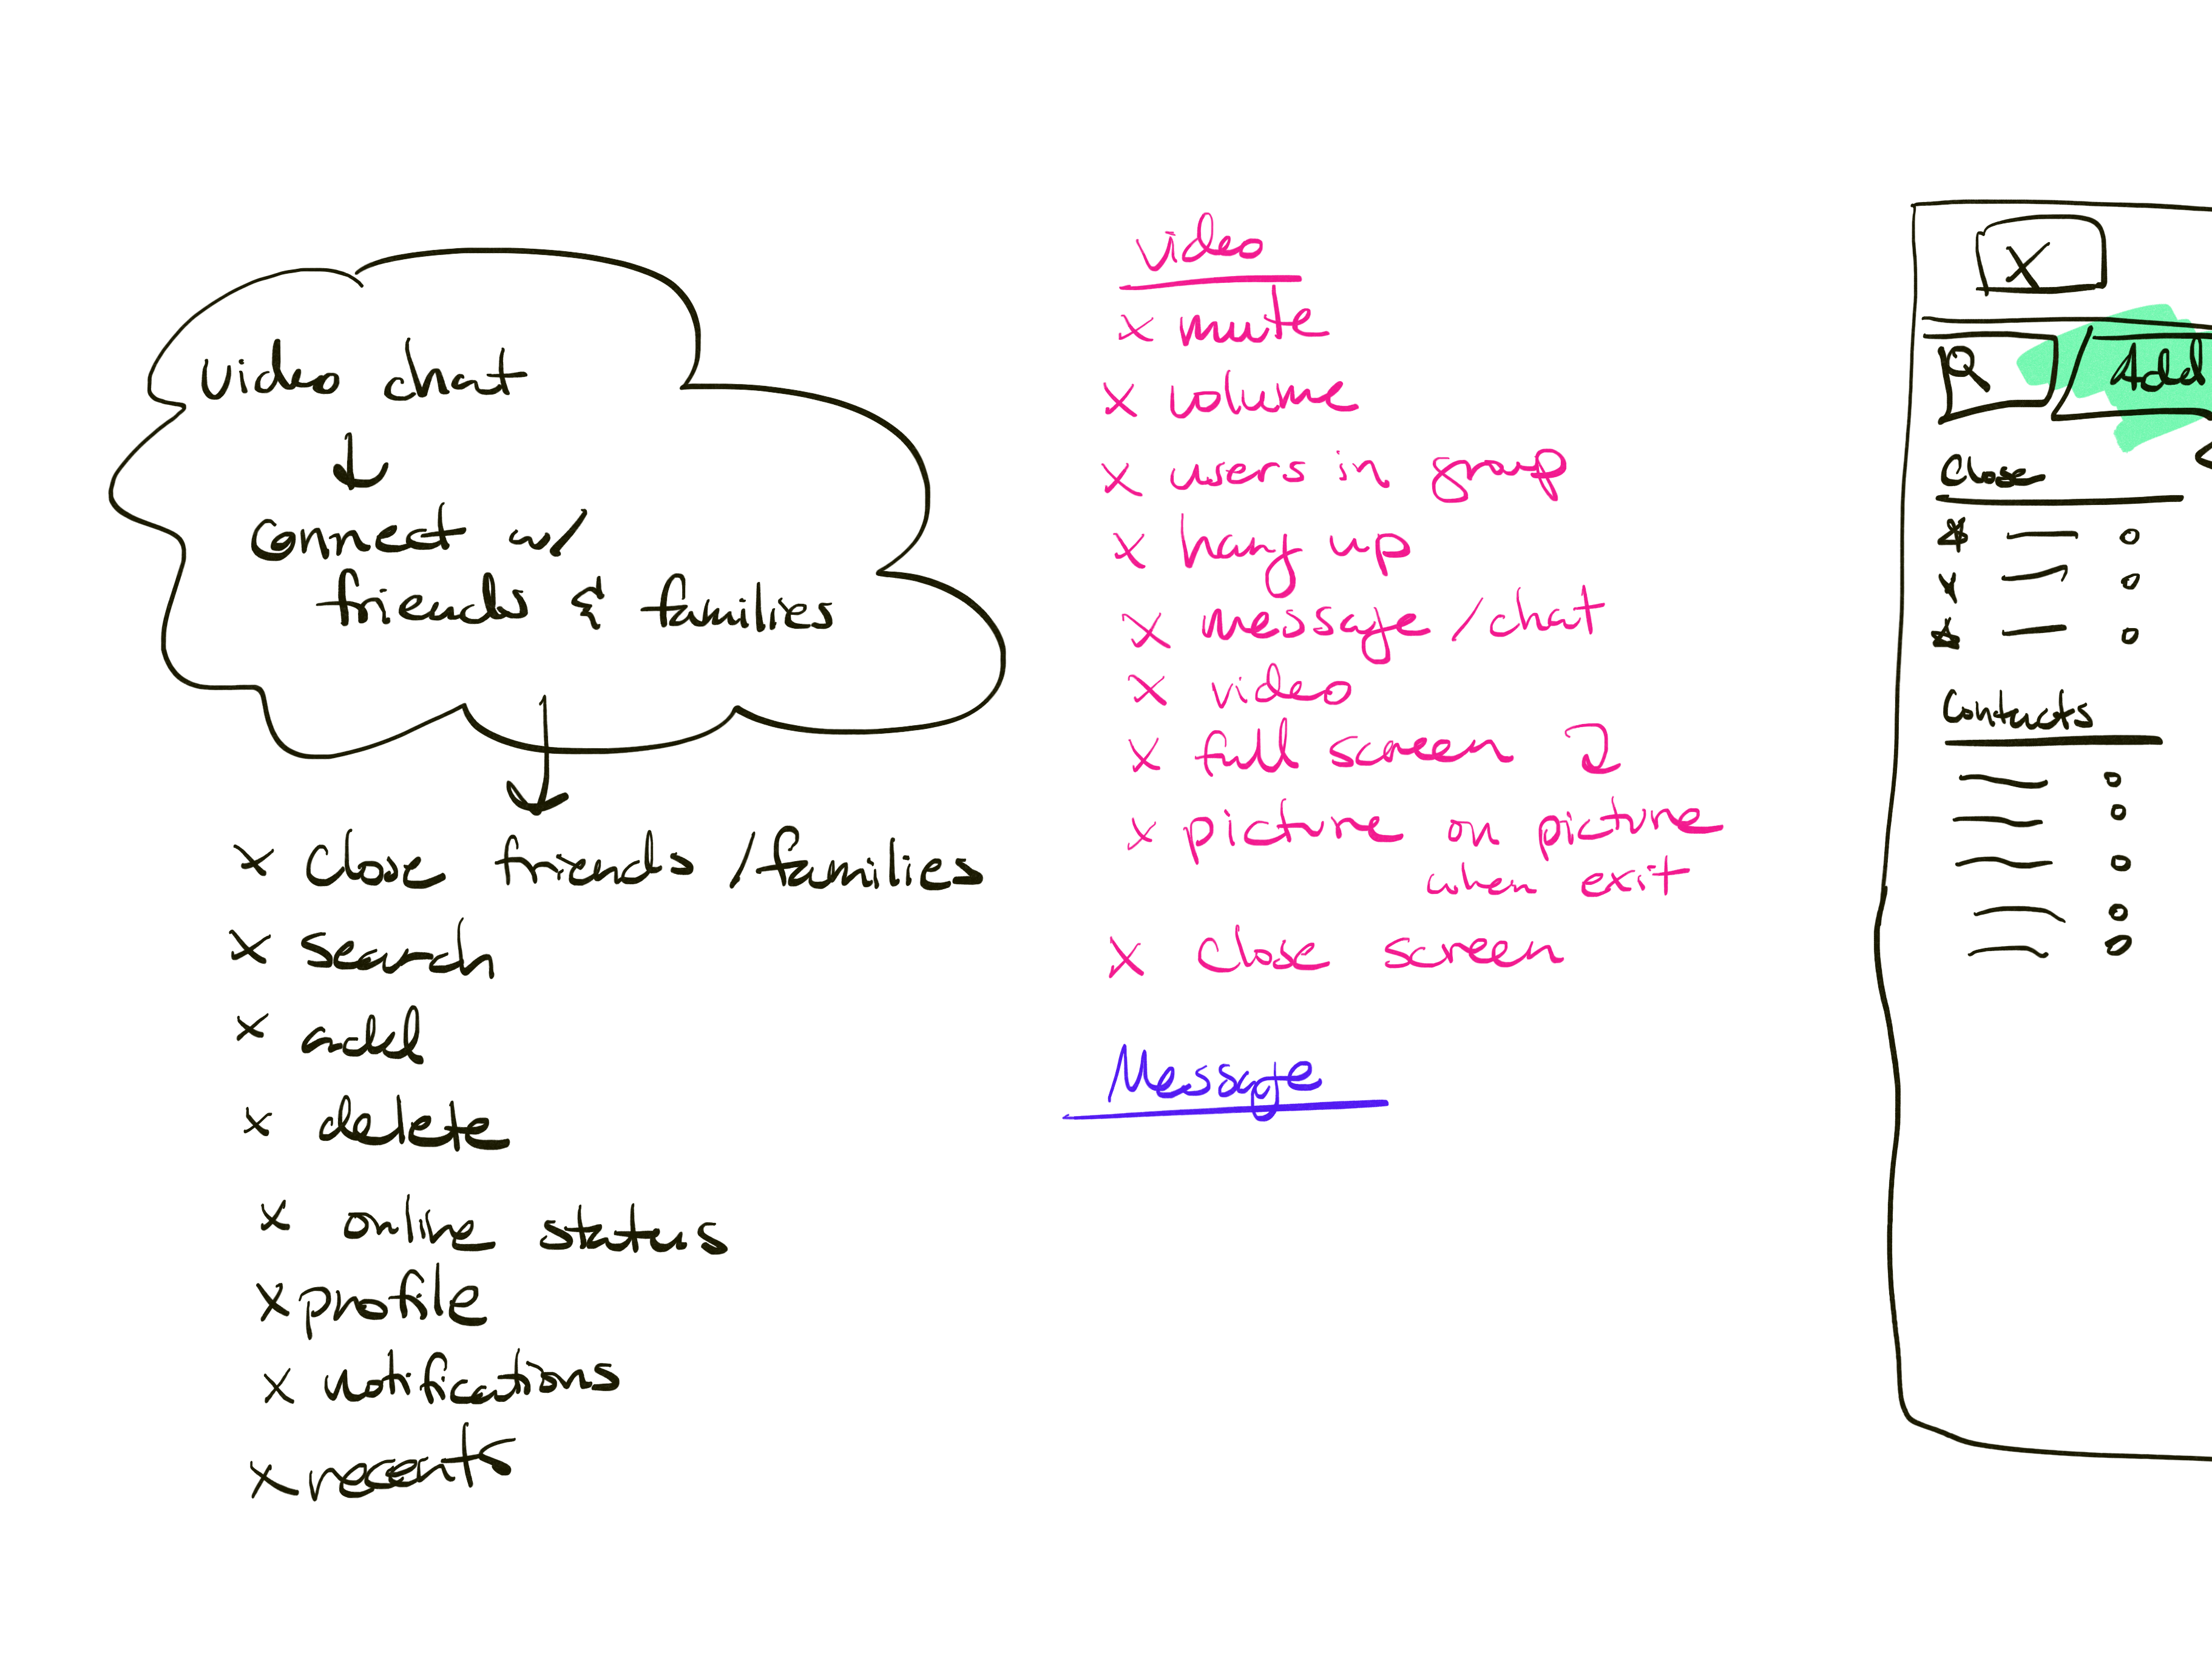 video chat
connect w/
friends & families
x Close friends /families
x search
x add
x delete
x online status
x profile
x notifications
x recents
video
x mute
x volume
x users in group
x hang up
x message /chat
x video
x full screen
x picture on picture
when exit
x Close screen
Message
X
Add
Close
Contacts